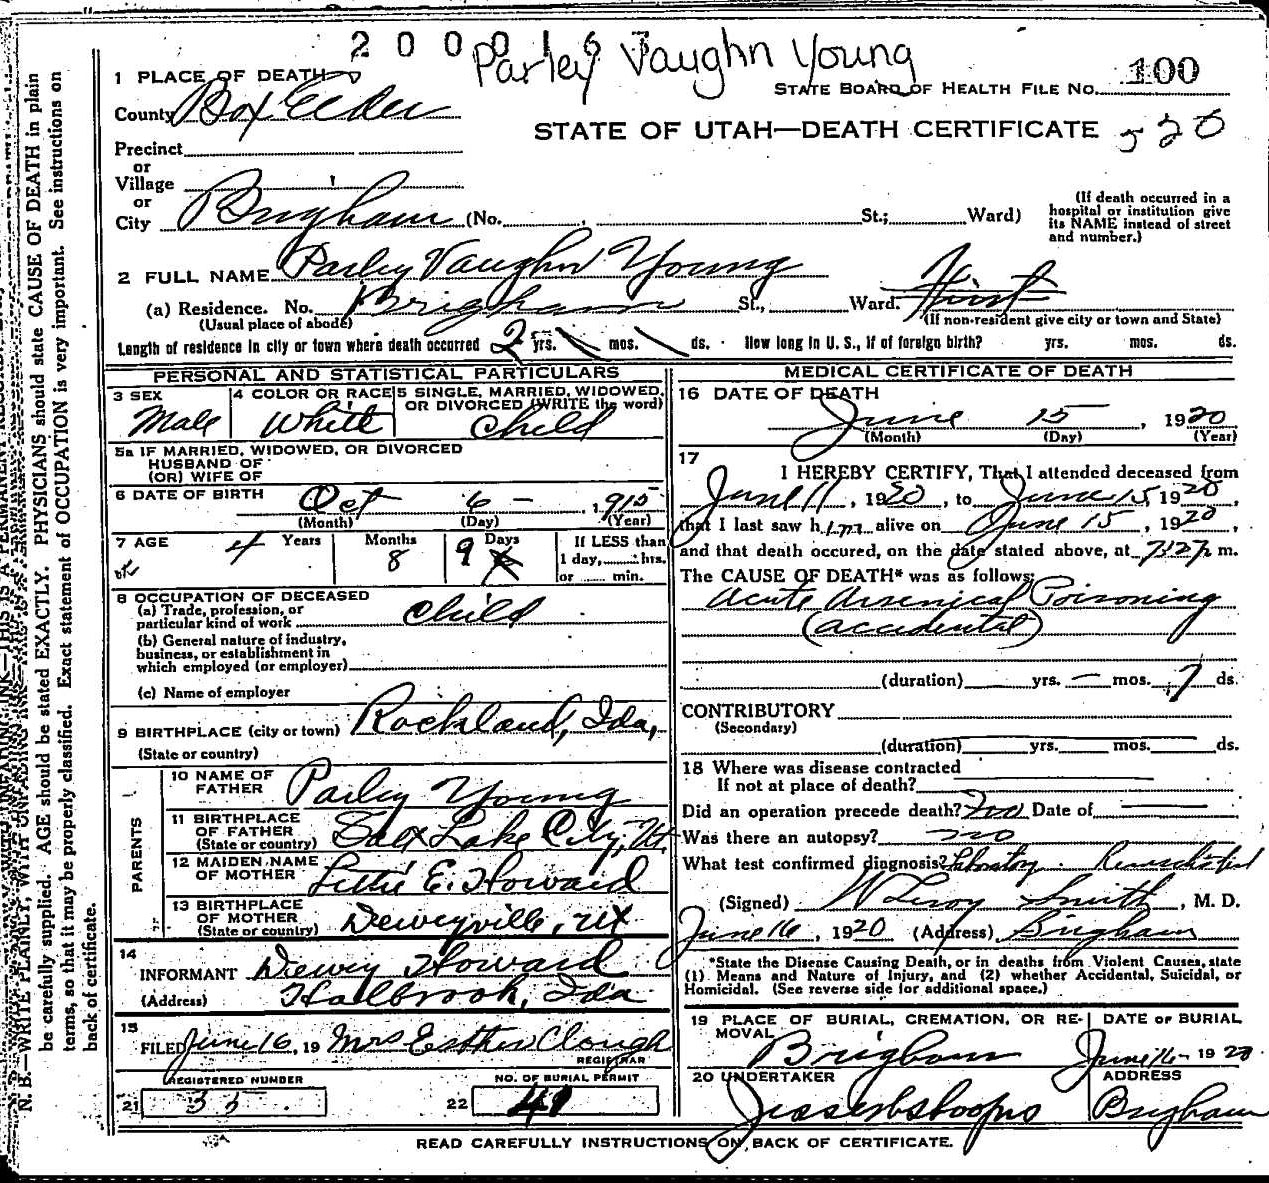 2 0 0 0 1 6 7
Parley Vaughn Young
STATE BOARD OF HEALTH FILE NO. 100
STATE OF UTAH—DEATH CERTIFICATE 520
1 PLACE OF DEATH
County Box Elder
Precinct
or
Village
or
City Brigham (No. , St.; Ward)
(If death occurred in a
hospital or institution give
its NAME instead of street
and number.)
2 FULL NAME Parley Vaughn Young
(a) Residence. No. Brigham St., Ward. First
(Usual place of abode) (If non-resident give city or town and State)
Length of residence in city or town where death occurred 2 yrs. mos. ds. How long in U. S., if of foreign birth? yrs. mos. ds.
PERSONAL AND STATISTICAL PARTICULARS
3 SEX Male
4 COLOR OR RACE White
5 SINGLE, MARRIED, WIDOWED,
OR DIVORCED (WRITE the word)
Child
5a IF MARRIED, WIDOWED, OR DIVORCED
HUSBAND OF
(OR) WIFE OF
6 DATE OF BIRTH Oct 6 - , 1915
(Month) (Day) (Year)
7 AGE 4 Years Months 8 Days 9
If LESS than
1 day, hrs.
or min.
8 OCCUPATION OF DECEASED
(a) Trade, profession, or
particular kind of work Child
(b) General nature of industry,
business, or establishment in
which employed (or employer)
(c) Name of employer
9 BIRTHPLACE (city or town) Rockland, Ida,
(State or country)
PARENTS
10 NAME OF
FATHER Parley Young
11 BIRTHPLACE
OF FATHER
(State or country) Salt Lake City, Ut
12 MAIDEN NAME
OF MOTHER Lettie E. Howard
13 BIRTHPLACE
OF MOTHER
(State or country) Deweyville, Ut
14
INFORMANT Dewey Howard
(Address) Holbrook, Ida
15
FILED June 16, 19 Mrs Esther Clough
REGISTRAR
REGISTERED NUMBER
21 35
NO. OF BURIAL PERMIT
22 41
MEDICAL CERTIFICATE OF DEATH
16 DATE OF DEATH
June 15 , 1920
(Month) (Day) (Year)
17
I HEREBY CERTIFY, That I attended deceased from
June 11, 1920, to June 15 1920,
that I last saw him alive on June 15, 1920,
and that death occured, on the date stated above, at 7:27 m.
The CAUSE OF DEATH* was as follows:
Acute Arsenical Poisoning
(accidental)
(duration) yrs. — mos. 7 ds.
CONTRIBUTORY
(Secondary)
(duration) yrs. mos. ds.
18 Where was disease contracted
If not at place of death?
Did an operation precede death? no Date of
Was there an autopsy? no
What test confirmed diagnosis? Laboratory
(Signed) W Leroy Smith, M. D.
June 16, 1920 (Address) Brigham
*State the Disease Causing Death, or in deaths from Violent Causes, state
(1) Means and Nature of Injury, and (2) whether Accidental, Suicidal, or
Homicidal. (See reverse side for additional space.)
19 PLACE OF BURIAL, CREMATION, OR RE-
MOVAL Brigham
DATE OF BURIAL
June 16 - 1920
20 UNDERTAKER
ADDRESS
Brigham
READ CAREFULLY INSTRUCTIONS ON BACK OF CERTIFICATE.
N. B.—WRITE PLAINLY, WITH UNFADING INK—THIS IS A PERMANENT RECORD.
be carefully supplied. AGE should be stated EXACTLY. PHYSICIANS should state CAUSE OF DEATH in plain
terms, so that it may be properly classified. Exact statement of OCCUPATION is very important. See instructions on
back of certificate.